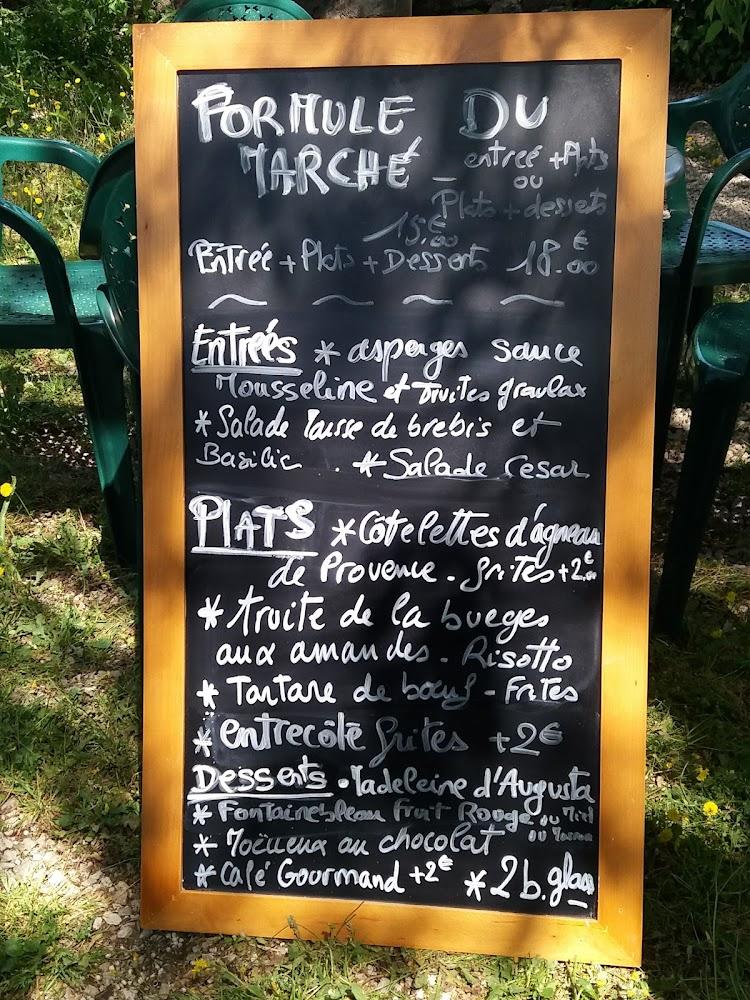 FORMULE DU
MARCHÉ - entreé + Plats
ou
Plats + desserts
15.00€
Entrée + Plats + Desserts 18.00€
Entrées * asperges sauce
Mousseline et truites gravlax
* Salade Tausse de brebis et
Basilic . * Salade Cesar
PLATS * Côtelettes d'agneau
de Provence - frites +2.00€
* truite de la bueges
aux amandes - Risotto
* Tartare de boeuf - Frites
* entrecôte frites +2€
Desserts • Madeleine d'Augusta
* Fontainebleau Fruit Rouge ou Miel
ou Marron
* Moëlleux au chocolat
* Café Gourmand +2€ * 2 b. glace